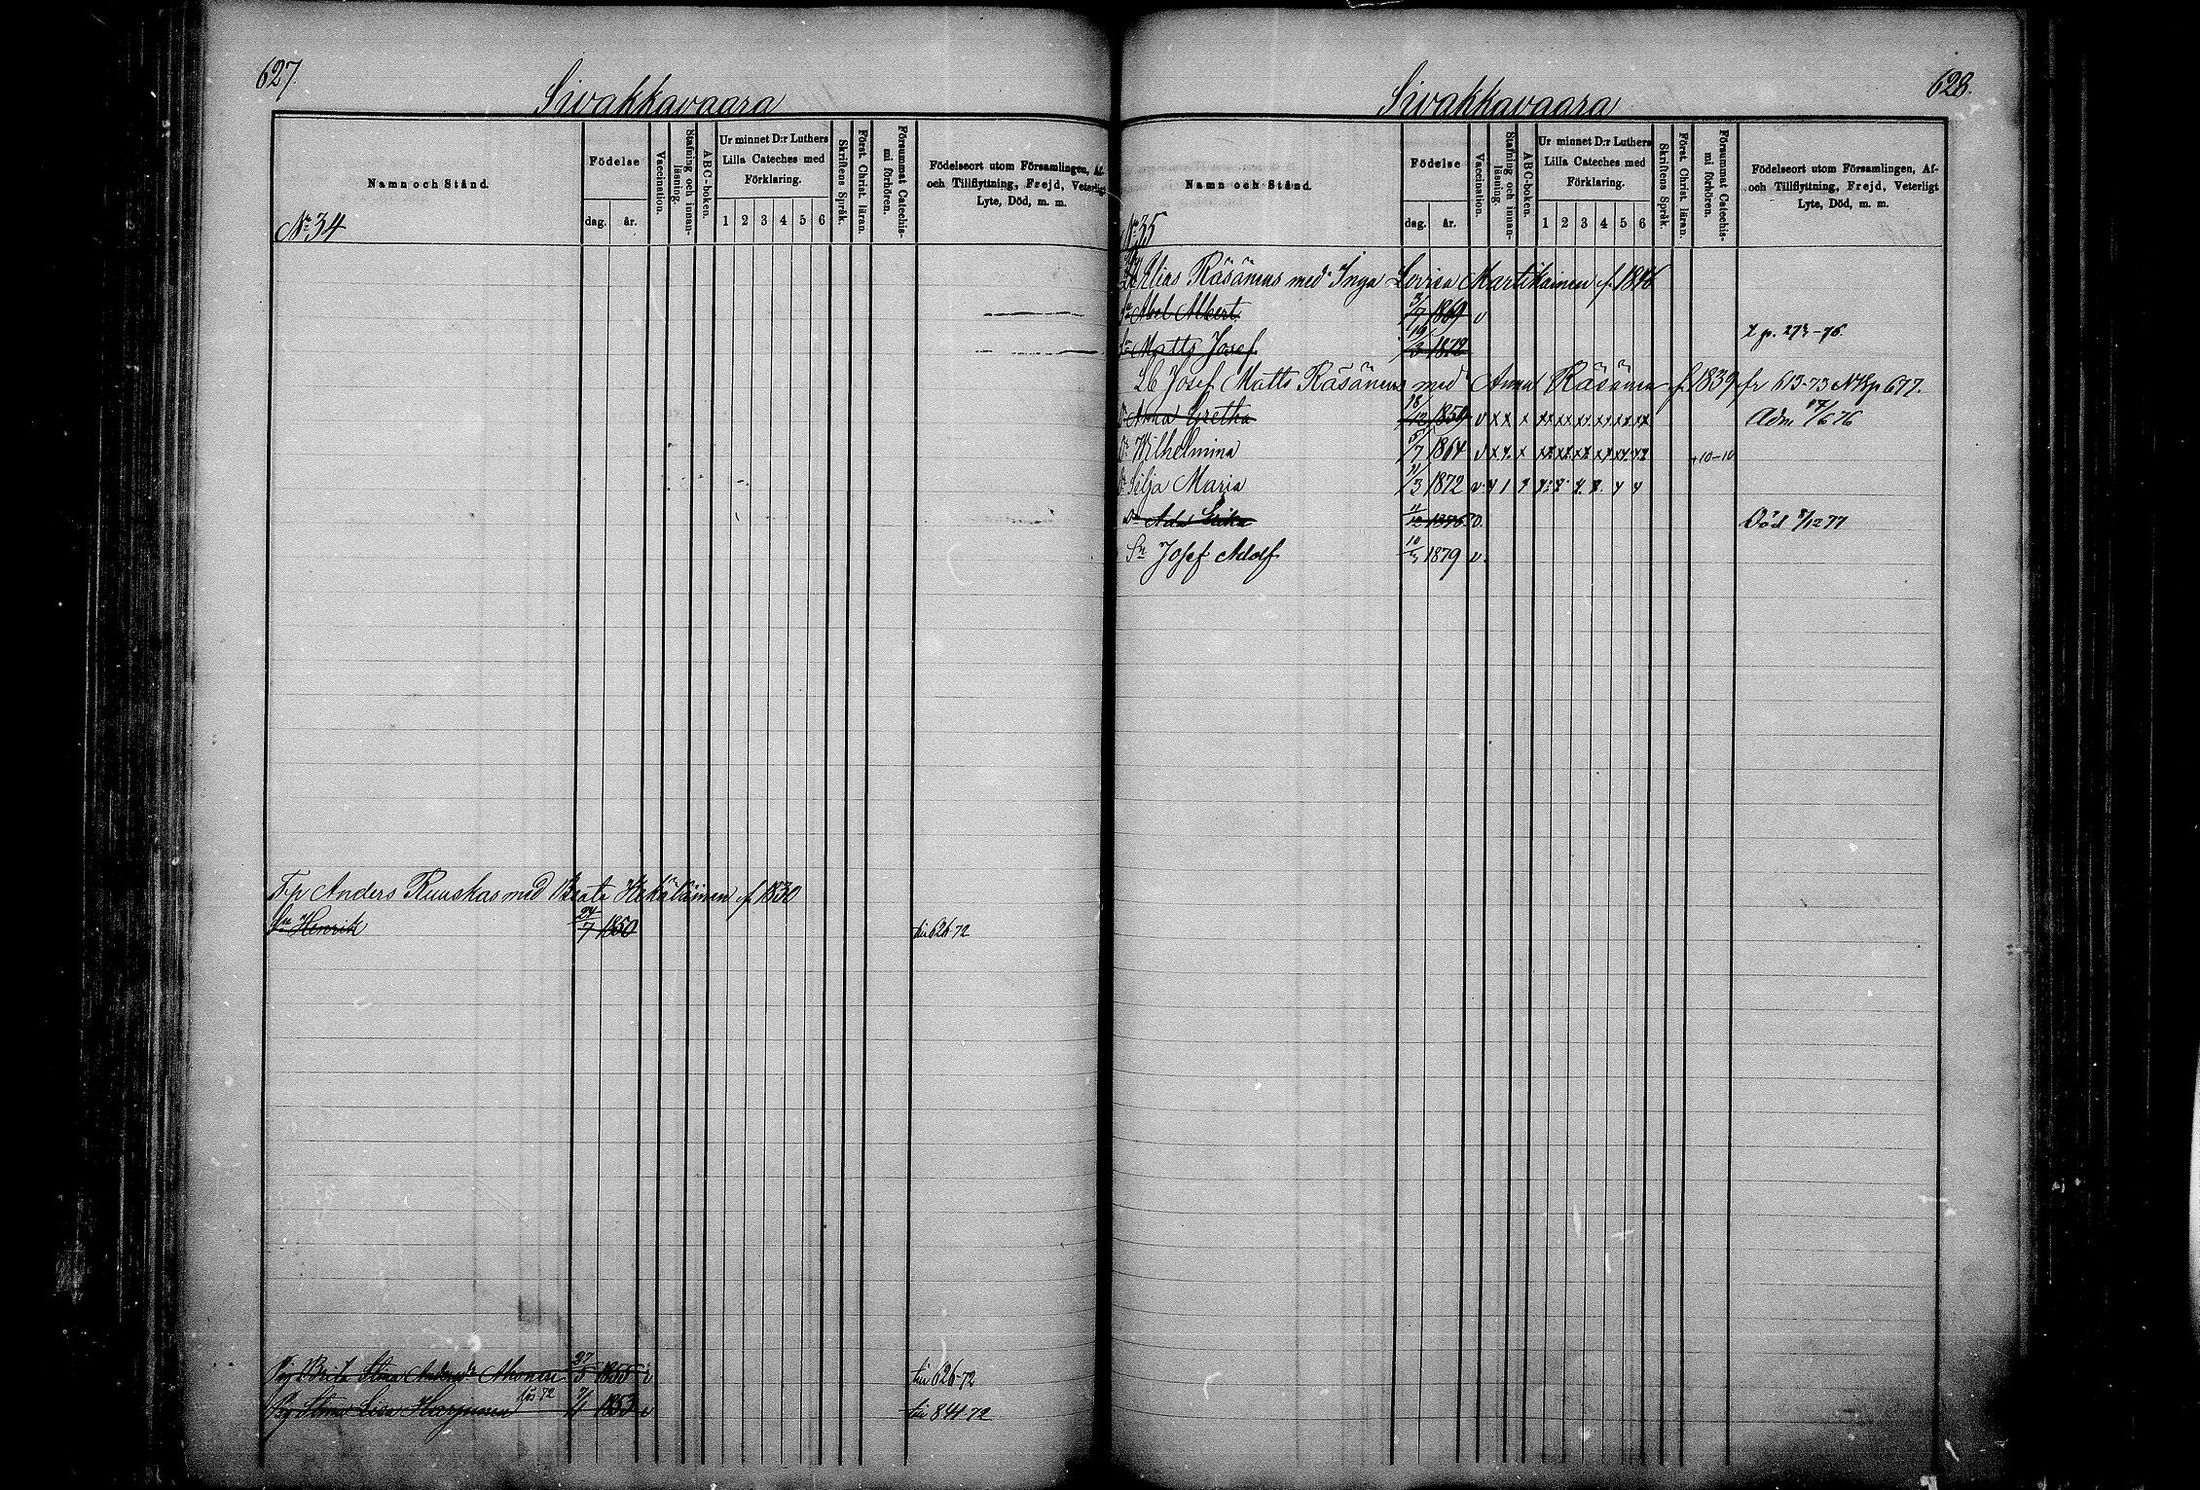 627.
Siwakkawaara
Namn och Stånd.
Födelse
dag. år.
Vaccination.
Stafning och innanläsning.
ABC-boken.
Ur minnet D:r Luthers Lilla Cateches med Förklaring.
1 2 3 4 5 6
Skriftens Språk.
Först. Christ. läran.
Försummat Catechismi förhören.
Födelseort utom Församlingen, Af- och Tillflyttning, Frejd, Veterligt Lyte, Död, m. m.
No 34
Anders Ruuskas med Beata f. 1830
Sn Henrik 24/7 1850 till 626-72
Pig Brita Stina 27/5 1855 v till 626-72
Pig Lisa Harjunen 1853 v till 841-72
628.
Siwakkawaara
Namn och Stånd.
Födelse
dag. år.
Vaccination.
Stafning och innanläsning.
ABC-boken.
Ur minnet D:r Luthers Lilla Cateches med Förklaring.
1 2 3 4 5 6
Skriftens Språk.
Först. Christ. läran.
Försummat Catechismi förhören.
Födelseort utom Församlingen, Af- och Tillflyttning, Frejd, Veterligt Lyte, Död, m. m.
No 35
Elias Räsänens med Inga Lovisa Martikainen f. 1846
Sn Abel Albert 3/7 1869 v
Sn Matts Josef 19/3 1872
Lb Josef Matts Räsänens med Anna Räsänen f. 1839 fr 613-73 NKp 677.
Dr Anna Gretha 18/12 1859 v x x x xx xx xx xx xx xx Adm 17/6 76
Dr Wilhelmina 5/7 1864 v x x x xx xx xx xx xx xx 10-10
Dr Silja Maria 11/3 1872 v
Dr Ada Erika 11/12 v. Död 8/12 77
Sn Josef Adolf 1879 v.